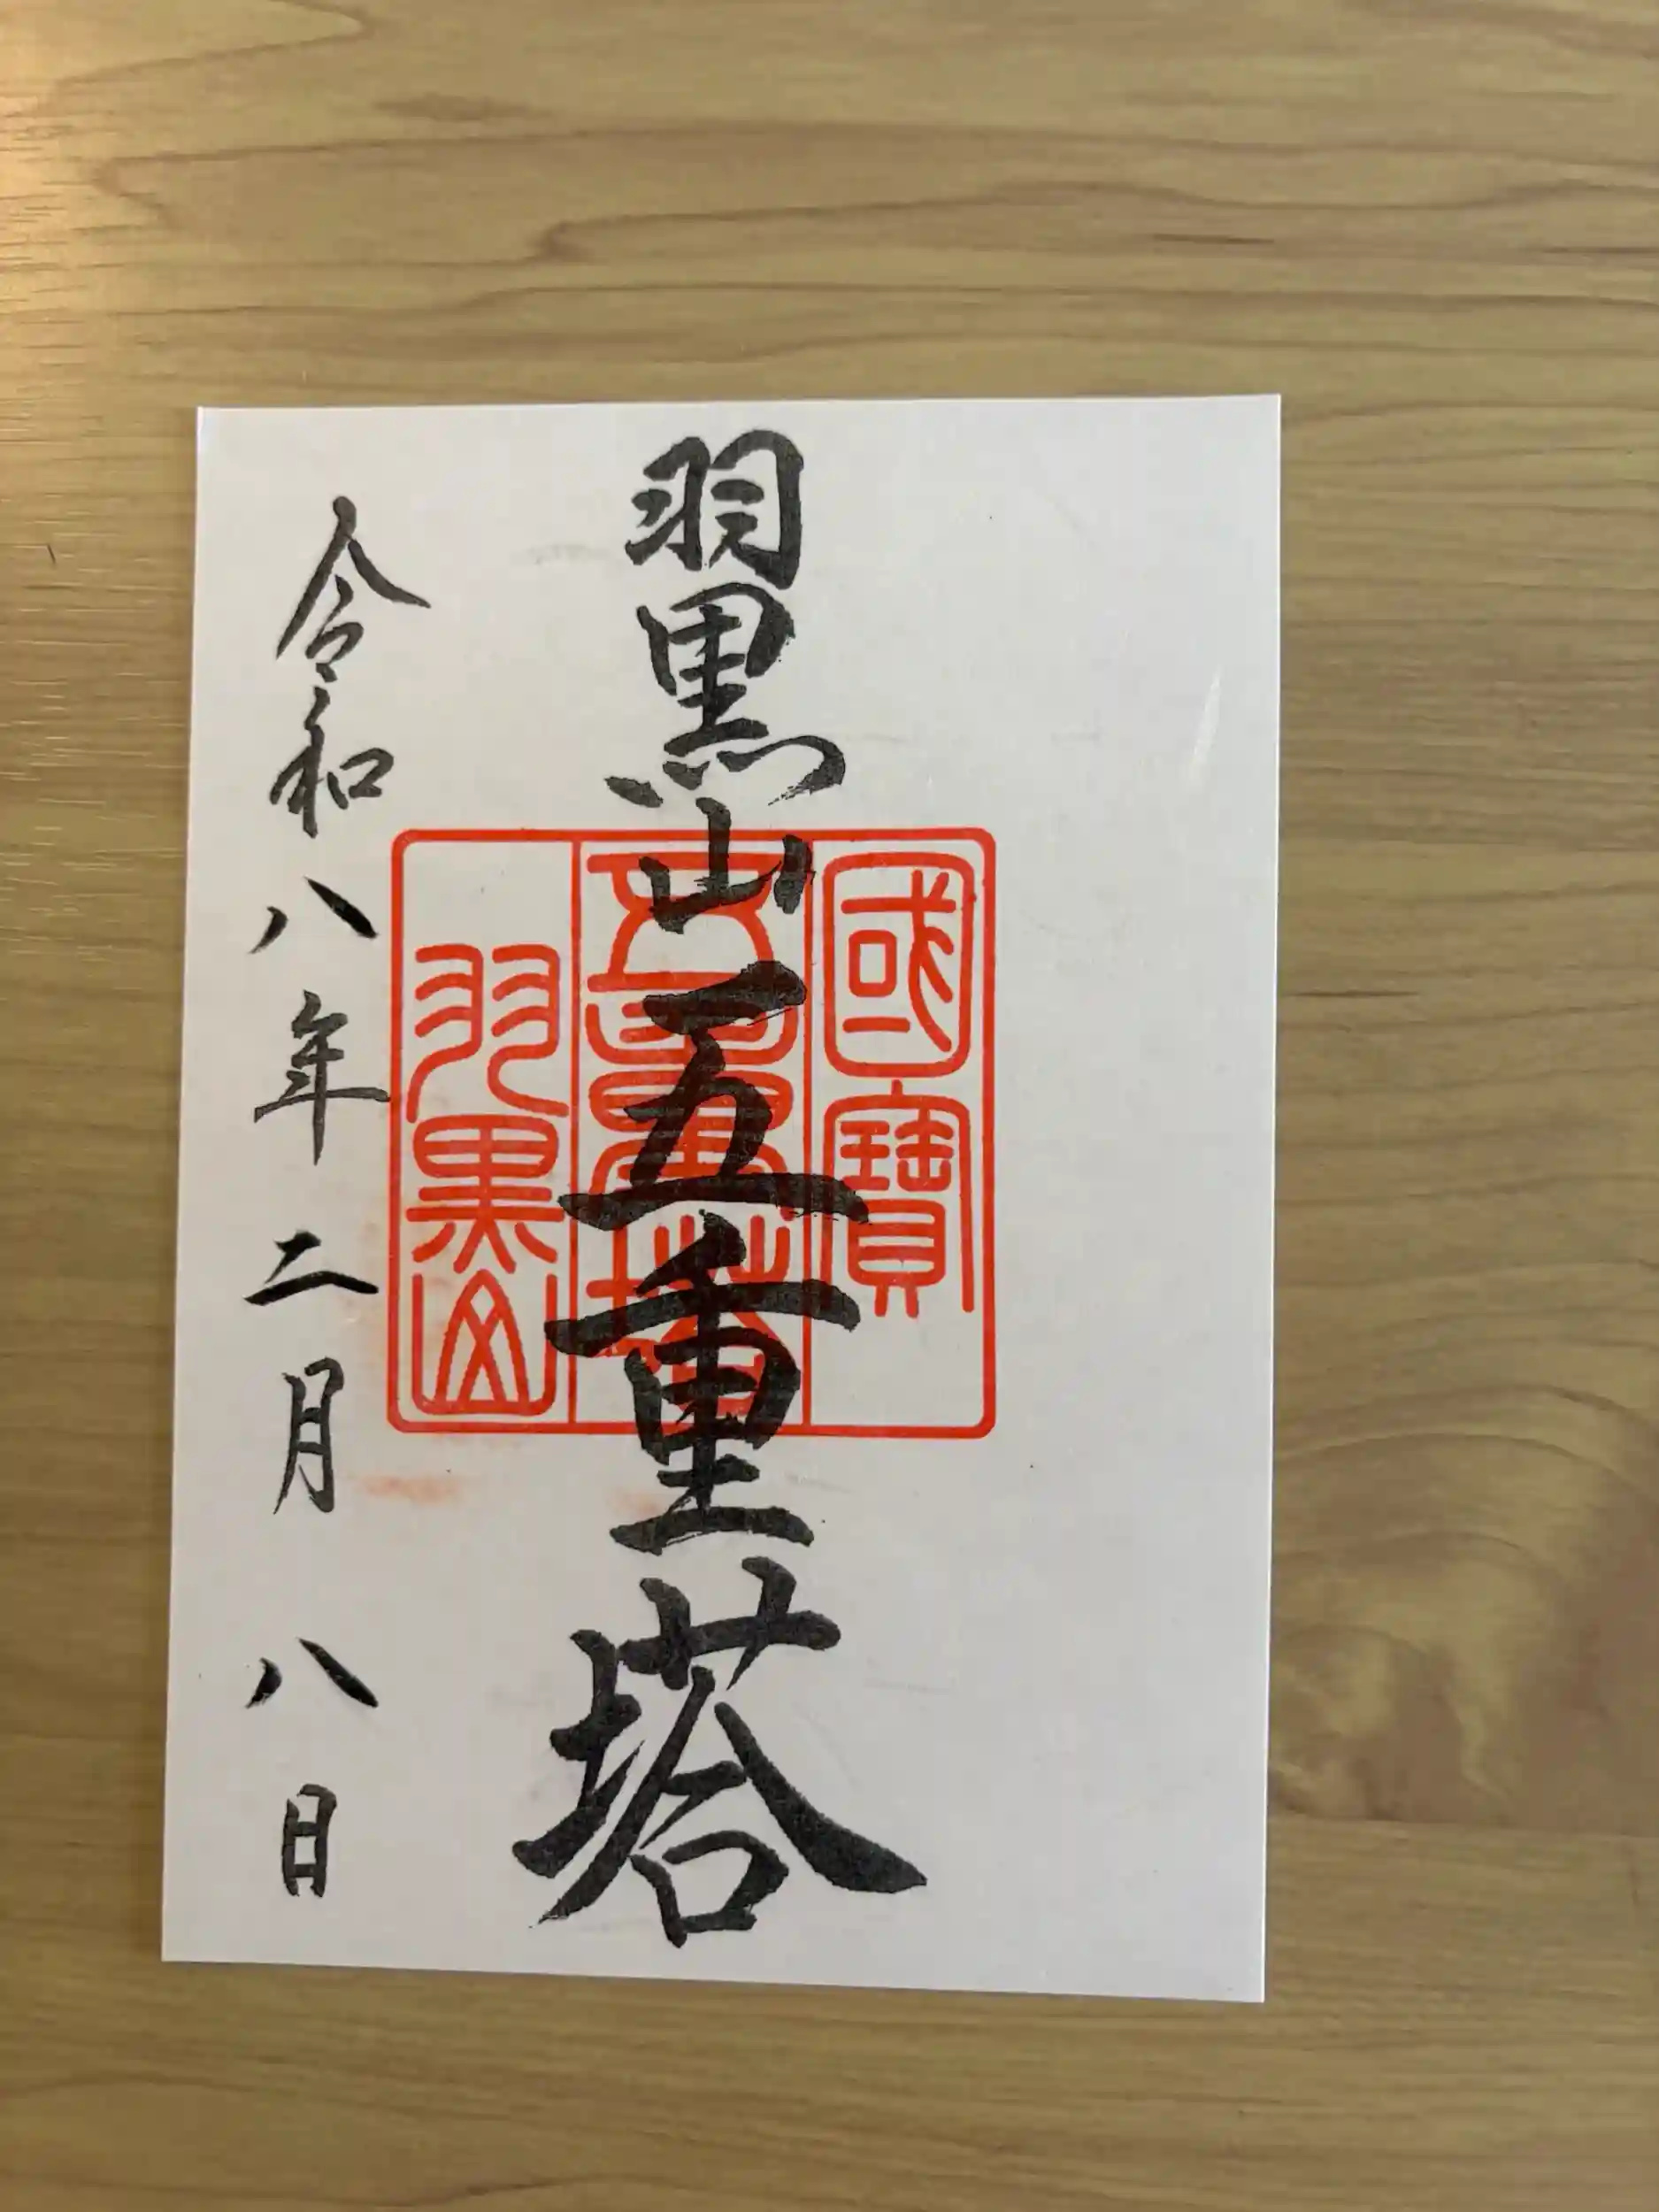 羽黒山五重塔
國寶
五重塔
羽黒山
令和八年二月八日